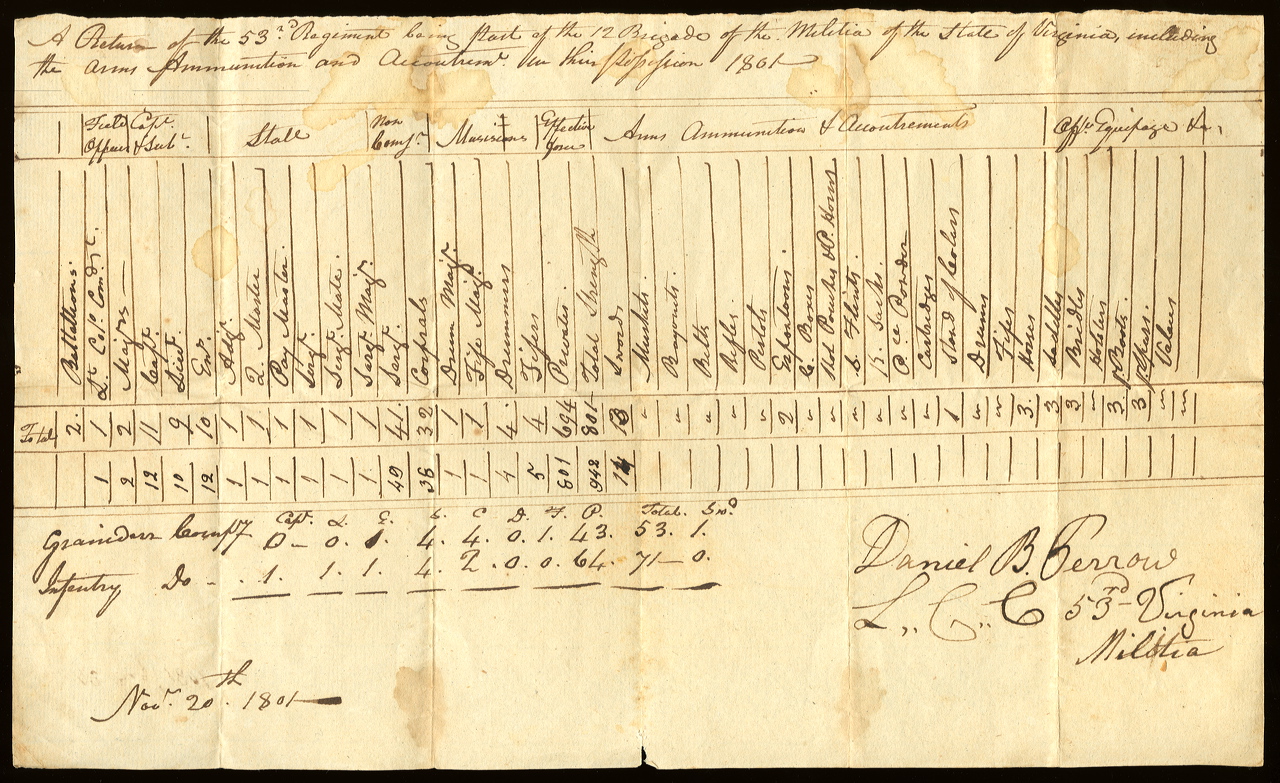 A Return of the 53rd Regiment being part of the 12 Brigade of the Militia of the State of Virginia, including
the Arms Ammunition and Accoutremts. in their 1801
Field Officers
Capt. & Sub.
Staff
Non Comy.
Musicians
Effective force
Arms Ammunition & Accoutrements
Equipage &c,
Battallions.
Lt. Col. Comdt.
Majors
Capt.
Lieut.
Ens.
Adjt.
Q. Master
Pay Master
Surg.
Surg. Mate.
Sargt. Majr.
Sargt.
Corprals
Drum Majr.
Fife Majr.
Drummers
Fifers
Privates.
Total Strength
Swords
Muskets
Bayonets.
Belts
Rifles.
Pistols
Espontoons.
C. Boxes
Shot Pouches & P. Horns
Flints.
Powder
Cartridges
Stand of Colars
Drums
Fifes
Horses
Saddles
Bridles
Holsters
p Boots.
Valeus
Total 2. 1 2 11 9 10 1 1 1 1 1 1 41. 32 1 1 4. 4 694 801 13 " " " " " 2 " " " " " " 1 " " 3. 3 3 " 3. 3 " "
1 2 12 10 12 1 1 1 1 1 1. 49 38 1 1 4 5 801 942 14
Capt. L. E. S. C. D. F. P. Total. Swd.
Graniders Compy 0 – 0. 1. 4. 4. 0. 1. 43. 53. 1.
Infentry Do – . 1. 1. 1. 4. 2. 0. 0. 64. 71 – 0.
Daniel B. Perrow
L,, C,, C 53rd – Virginia
Militia
Novr. 20th. 1801